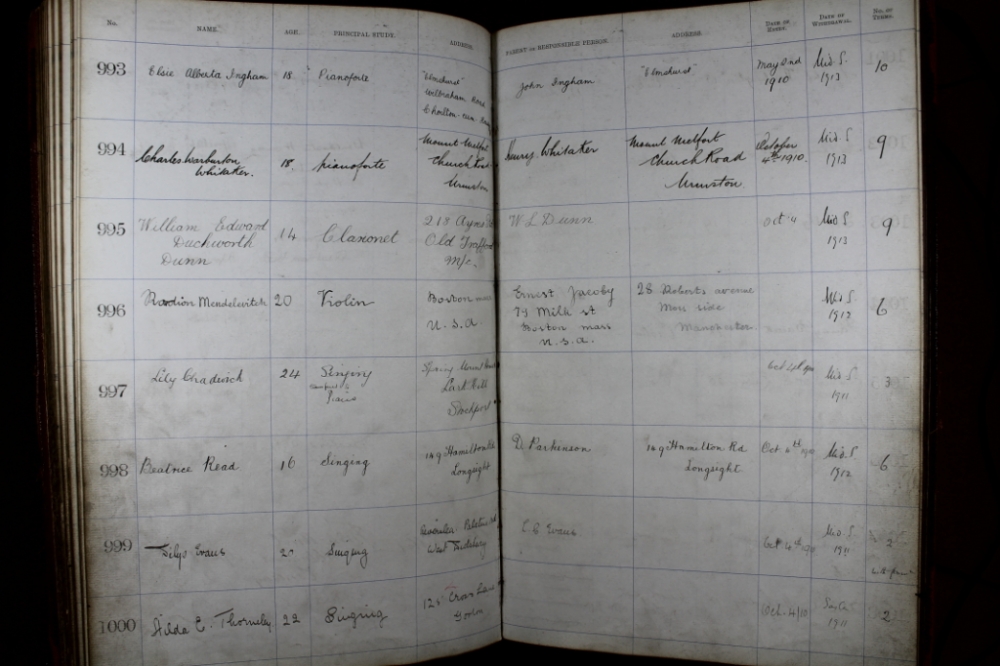 No. NAME. AGE. PRINCIPAL STUDY. ADDRESS. PARENT OR RESPONSIBLE PERSON. ADDRESS. DATE OF ENTRY. DATE OF WITHDRAWAL. NO. OF TERMS.
993 Elsie Alberta Ingham 18 Pianoforte "Elmhurst" John Ingham "Elmhurst" May 2nd Mid S. 10
Wilbraham Road 1910 1913
Chorlton-cum-
994 Charles Warburton 18. pianoforte Mount Melfort Henry Whitaker Mount Melfort October Mid S 9
Whitaker. Church Road Church Road 4th 1910. 1913
Urmston Urmston
995 William Edward 14 Clarionet 218 W L Dunn Oct 4 Mid S 9
Duckworth Old Trafford 1913
Dunn M/c.
996 Mendelevitch 20 Violin Boston mass Ernest Jacoby 28 Roberts avenue Mid S. 6
U.S.A. 79 Milk st Moss side 1912
Boston mass Manchester
U.S.A.
997 Lily Chadwick 24 Singing Mid S. 3
Piano 1911
Stockport
998 Beatrice Read 16 Singing 149 Hamilton Rd D. Parkinson 149 Hamilton Rd Oct 4th Mid S. 6
Longsight Longsight 1912
999 Evans Singing Evans Oct 4th Mid S 2
West Didsbury 1911
1000 Hilda E. Thorneley 22 Singing 125 Cross Lane Oct. 4/10 2
Gorton 1911